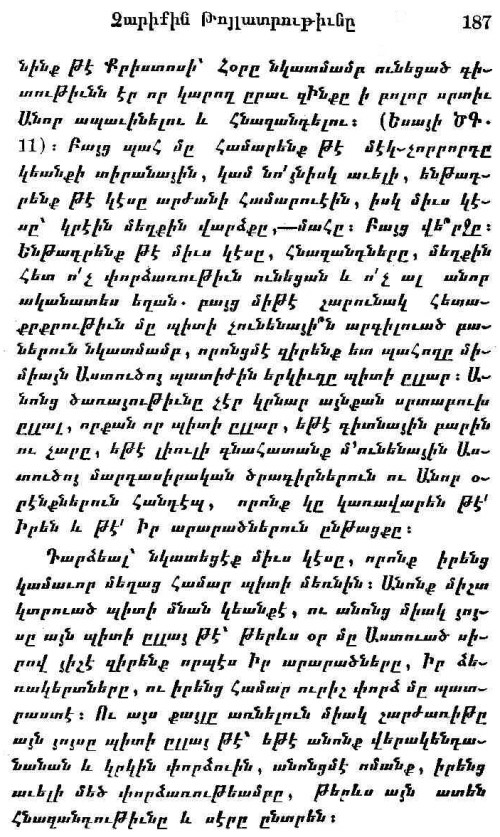 Չարիքին Թոյլատրութիւնը 187
նինք թէ Քրիստոսի՝ Հօրը նկատմամբ ունեցած գի-
տութիւնն էր որ կարող ըրաւ զԻնքը ի բոլոր սրտիւ
Անոր ապաւինելու և հնազանդելու։ (Եսայի ԾԳ.
11)։ Բայց պահ մը համարենք թէ մէկ-չորրորդը
կեանքի տիրանային, կամ նո՛յնիսկ աւելի, ենթադ-
րենք թէ կէսը արժանի համարուէին, իսկ միւս կէ-
սը՝ կրէին մեղքին վարձքը,—մահը։ Բայց վե՞րջը։
Ենթադրենք թէ միւս կէսը, հնազանդները, մեղքին
հետ ո՛չ փորձառութիւն ունեցան և ո՛չ ալ անոր
ականատես եղան. բայց միթէ շարունակ հետա-
քրքրութիւն մը պիտի չունենայի՞ն արգիլուած բա-
ներուն նկատմամբ, որոնցմէ զիրենք ետ պահողը մի-
միայն Աստուծոյ պատիժին երկիւղը պիտի ըլլար։ Ա-
նոնց ծառայութիւնը չէր կրնար այնքան սրտաբուխ
ըլլալ, որքան որ պիտի ըլլար, եթէ գիտնային բարին
ու չարը, եթէ լիուլի գնահատանք մ՚ունենային Աս-
տուծոյ մարդասիրական ծրագիրներուն ու Անոր օ-
րէնքներուն հանդէպ, որոնք կը կառավարեն թէ՛
Իրեն և թէ՛ Իր արարածներուն ընթացքը։
Դարձեալ՝ նկատեցէք միւս կէսը, որոնք իրենց
կամաւոր մեղաց համար պիտի մեռնին։ Անոնք միշտ
կտրուած պիտի մնան կեանքէ, ու անոնց միակ յոյ-
սը այն պիտի ըլլայ թէ՝ թերևս օր մը Աստուած սի-
րով յիշէ զիրենք որպէս Իր արարածները, Իր ձե-
ռակերտները, ու իրենց համար ուրիշ փորձ մը պատ-
րաստէ։ Ու այս քայլը առնելուն միակ շարժառիթը
այն յոյսը պիտի ըլլայ թէ՝ եթէ անոնք վերակենդա-
նանան և կրկին փորձուին, անոնցմէ ոմանք, իրենց
աւելի մեծ փորձառութեամբը, թերևս այն ատեն
հնազանդութիւնը և սէրը ընտրեն։